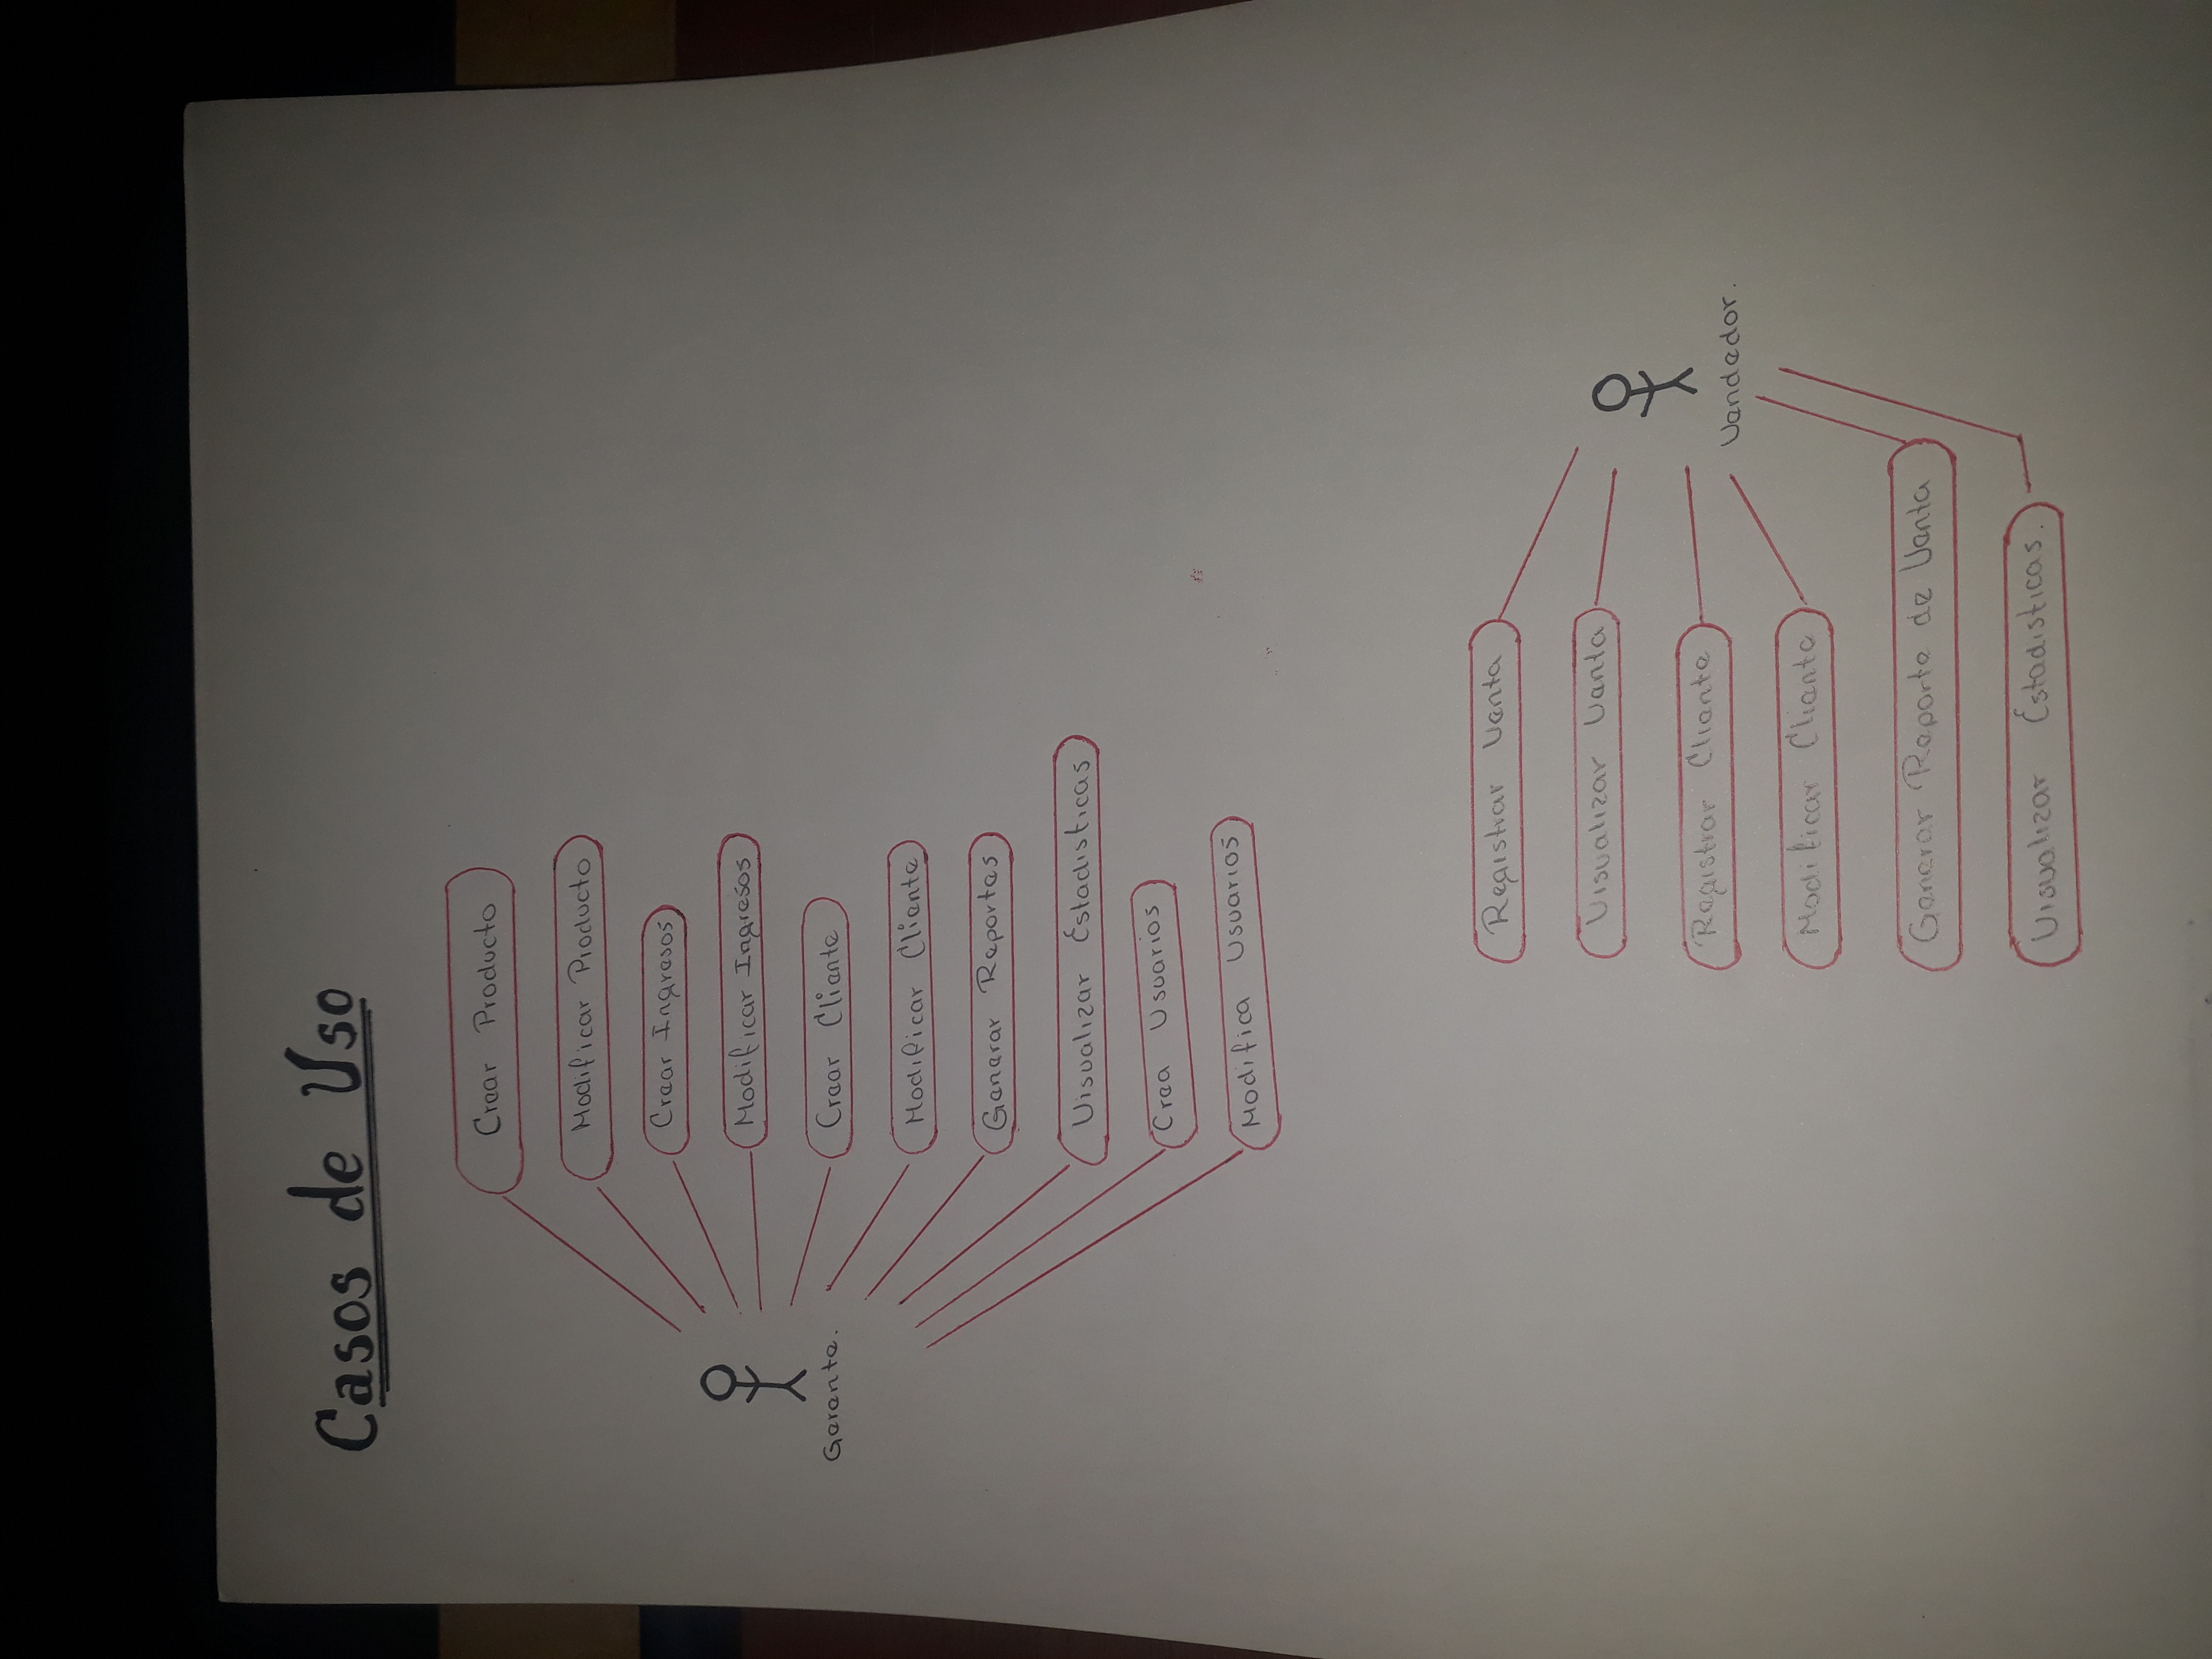 Casos de Uso
Crear Producto
Modificar Producto
Crear Ingresos
Modificar Ingresos
Gerente.
Crear Cliente
Modificar Cliente
Generar Reportes
Visualizar Estadisticas
Crea Usuarios
Modifica Usuarios
Registrar Venta
Visualizar Venta
Registrar Cliente
Vendedor.
Modificar Cliente
Generar Reporte de Venta
Visualizar Estadisticas.